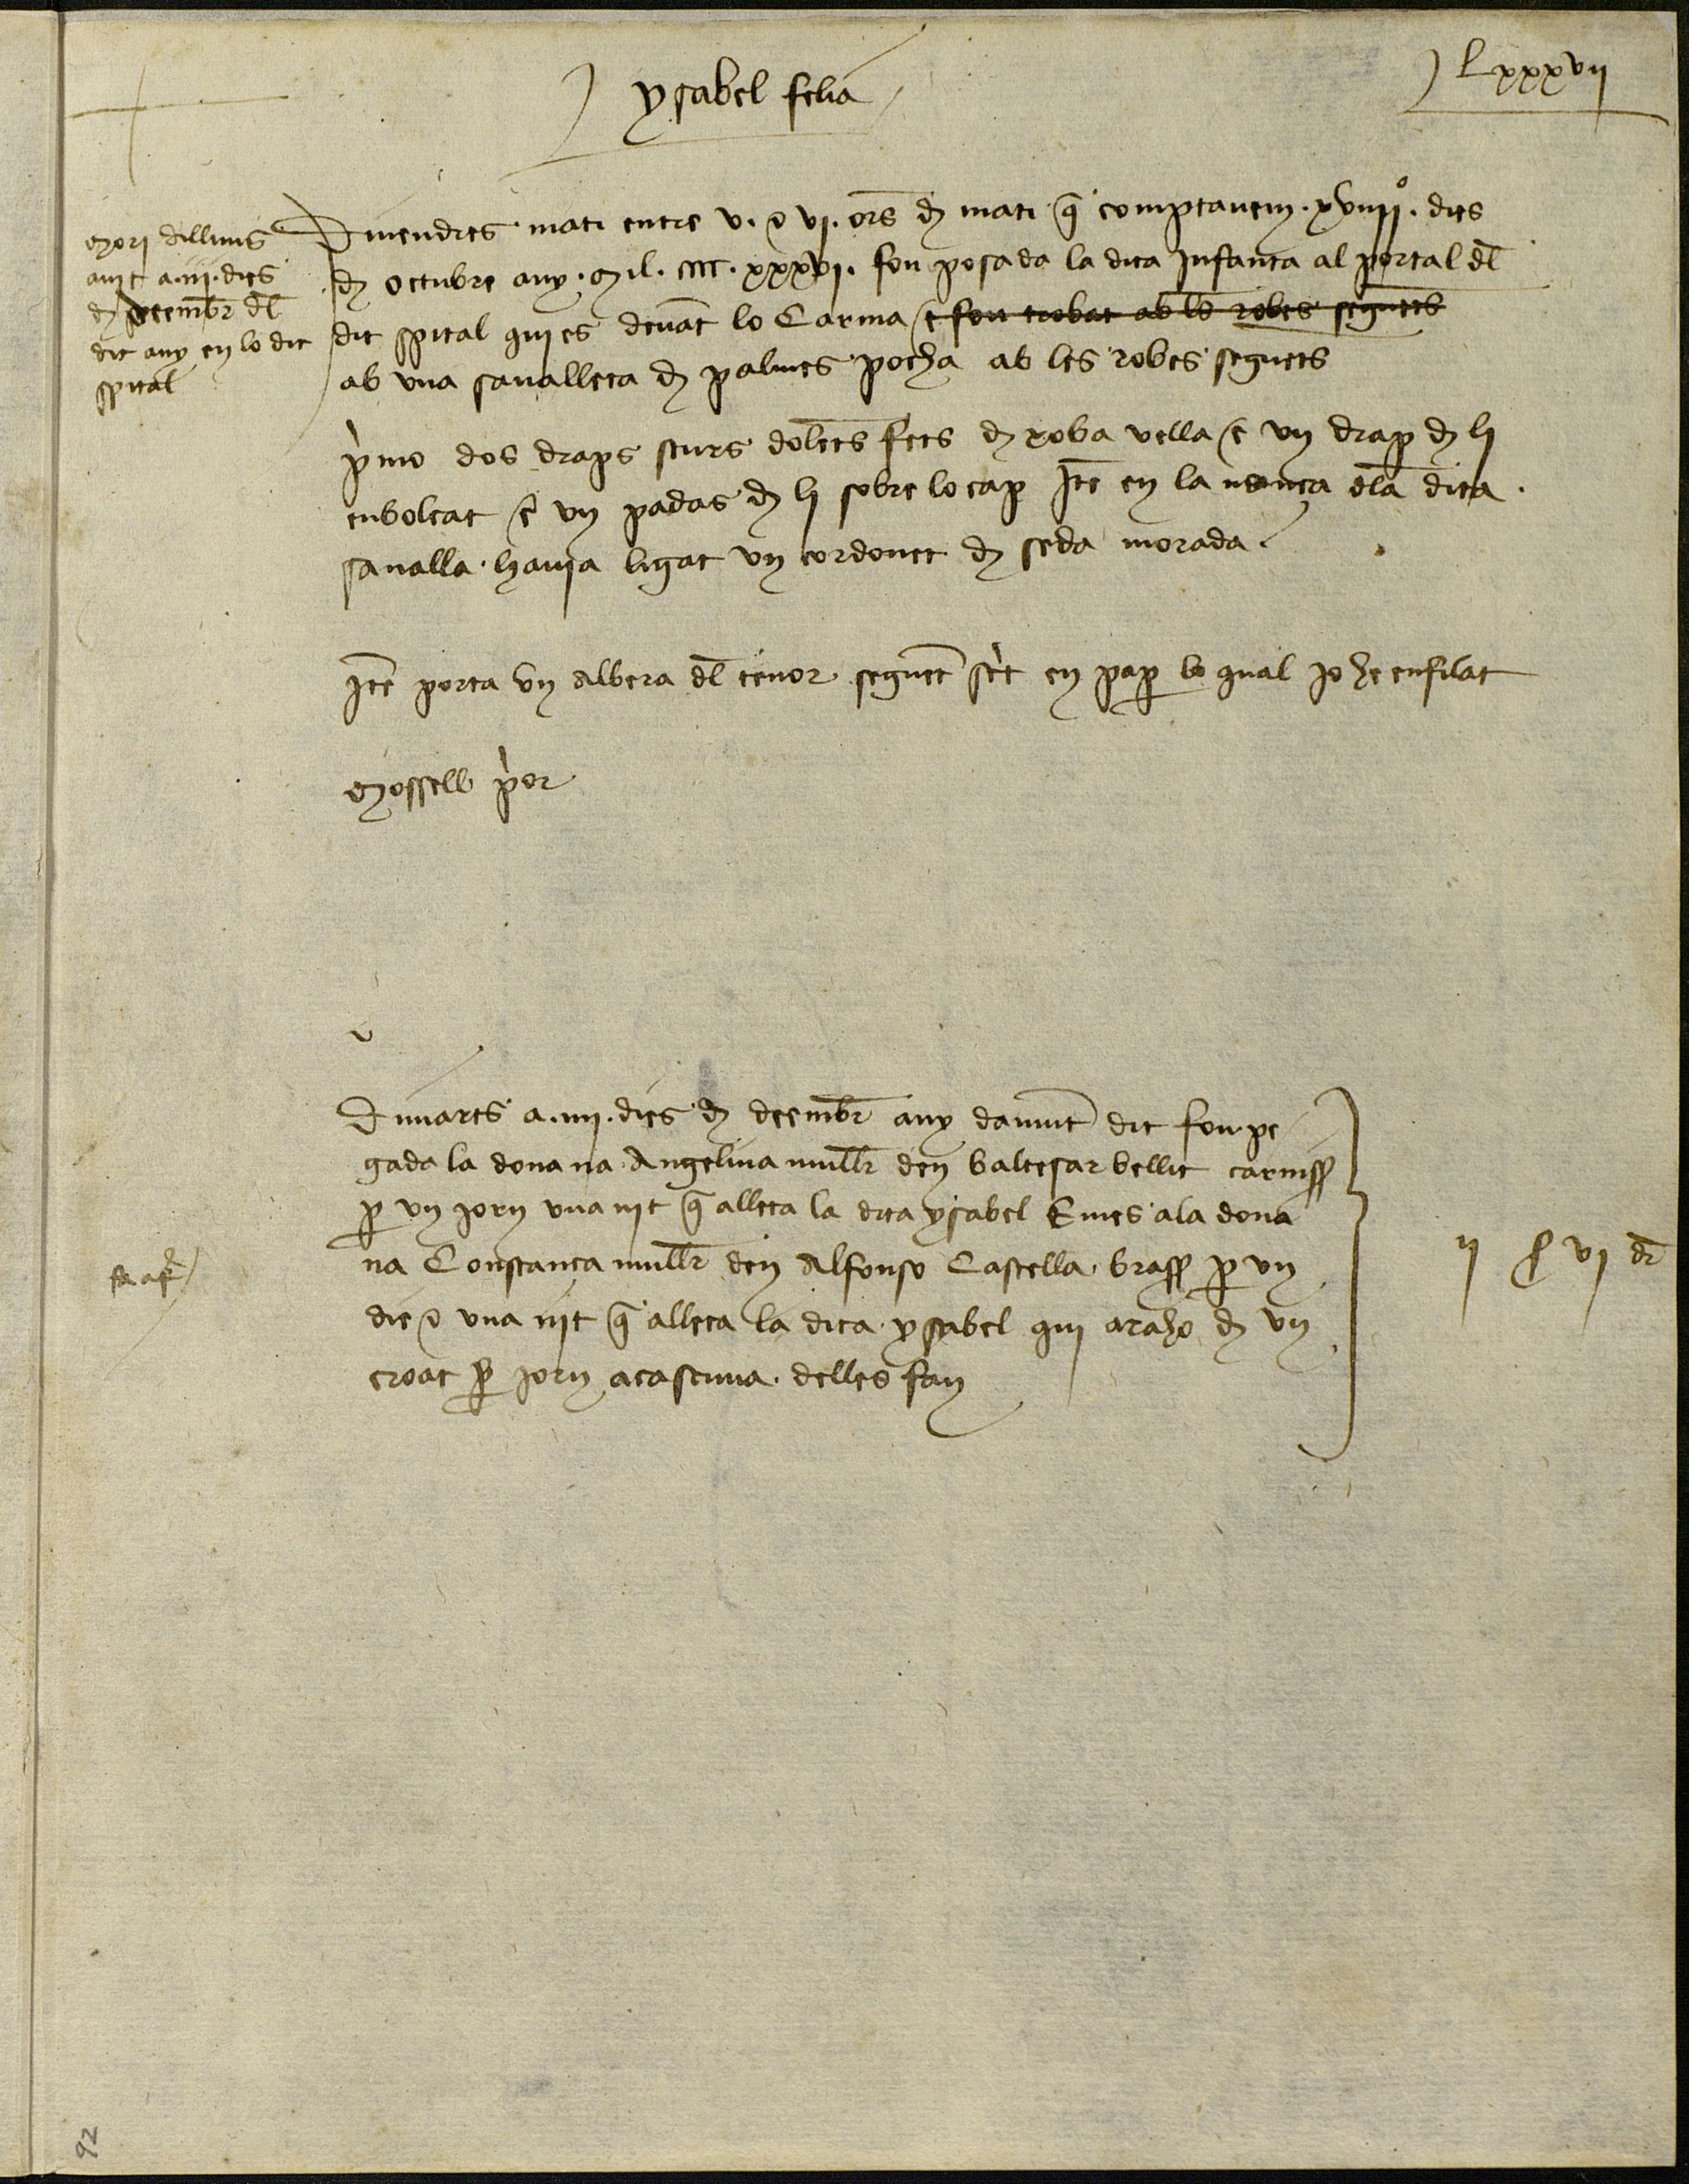 Lxxxvii
ysabel felia
mori dilluns
a nit a .iii. dies
de deembr dl
dit any en lo dit
spital
Divendres mati entre v. e vi. ors de mati q comptavem .xviiii. dies
de octubre any .Mil. cccc. xxxvi. fou posada la dita infanta al portal dl
dit spital qui es devat lo Carma e fou trobat ab les robes seguets
ab una savalleta de palmes pocha ab les robes seguets
pmo dos draps scurs dolets fets de roba vella e un drap de li
enbolcat e un padas de li sobre lo cap Ite en la nança dla dita
savalla havia ligat un cordonet de seda morada
Ite porta un albera dl tenor seguet sct en pap lo qual jo he enfilat
Mossell por
Dimarts a .iiii. dies de deembr any damut dit fou pe
gada la dona na Angelina mullr den baltesar bellit carniss
p un jorn una nit q alleta la dita ysabel E mes a la dona
na Constança mullr den Alfonso Castella brass p un
die e una nit q alleta la dita ysabel qui a raho de un
croat p jorn a cascuna delles fan
ii s vi dr
92